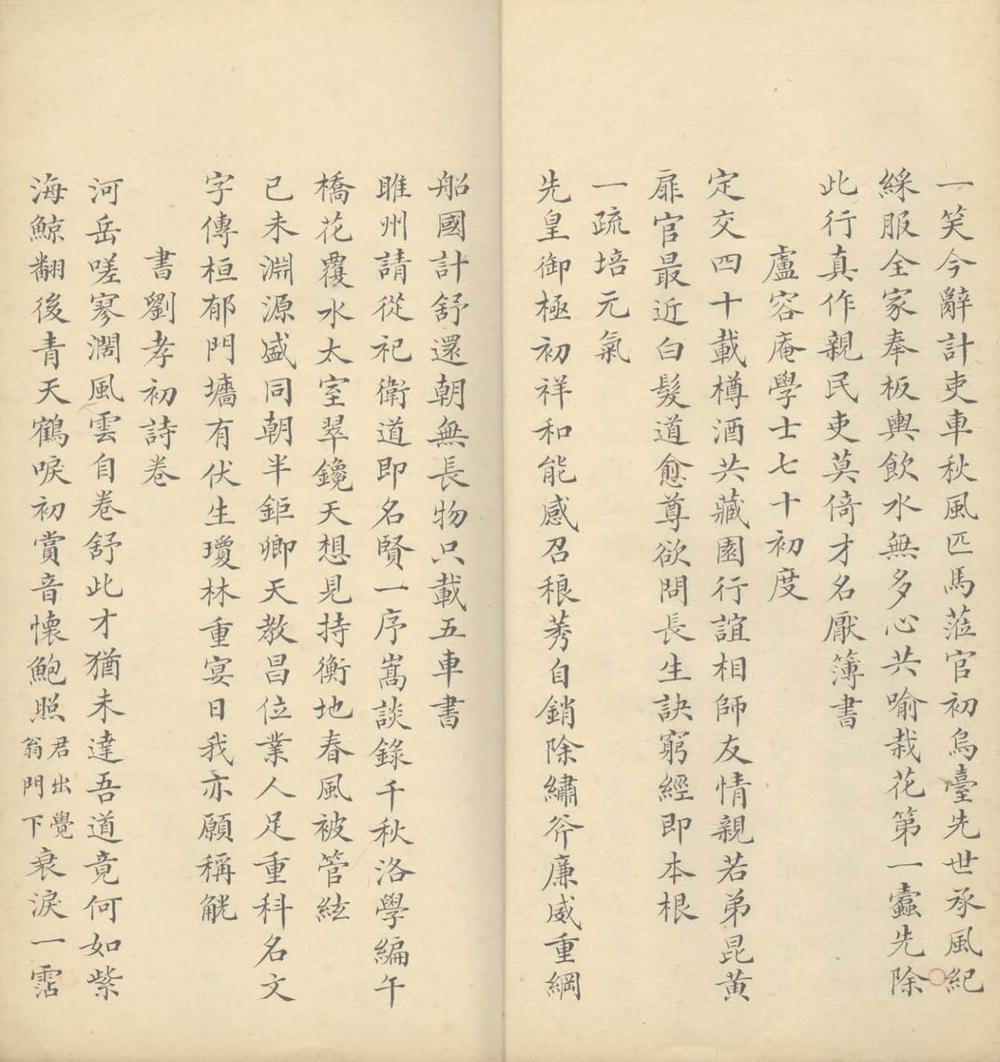 一笑今辭計吏車秋風匹馬蒞官初烏臺先世承風紀
綵服全家奉板輿飲水無多心共喻栽花第一蠹先除
此行真作親民吏莫倚才名厭簿書
盧容庵學士七十初度
定交四十載樽酒共藏園行誼相師友情親若弟昆黃
扉官最近白髮道愈尊欲問長生訣窮經即本根
一疏培元氣
先皇御極初祥和能感召稂莠自銷除繡斧廉威重綱
船國計舒還朝無長物只載五車書
睢州請從祀衛道即名賢一序嵩談錄千秋洛學編午
橋花覆水太室翠鑱天想見持衡地春風被管絃
已未淵源盛同朝半鉅卿天教昌位業人足重科名文
字傳桓郁門墻有伏生瓊林重宴日我亦願稱觥
書劉孝初詩卷
河岳嗟寥濶風雲自卷舒此才猶未達吾道竟何如紫
海鯨翻後青天鶴唳初賞音懷鮑照君出覺翁門下衰淚一霑